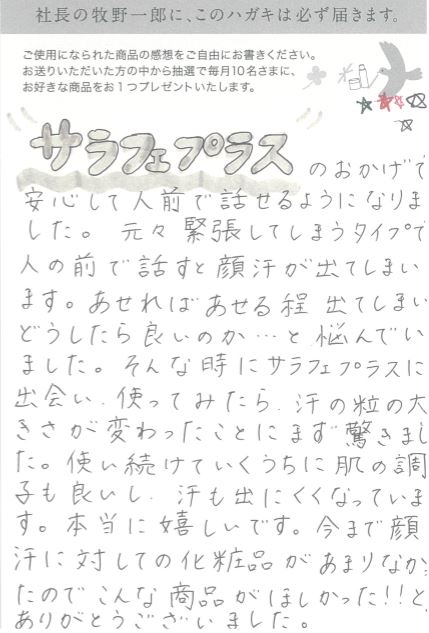 社長の牧野一郎に、このハガキは必ず届きます。
ご使用になられた商品の感想をご自由にお書きください。
お送りいただいた方の中から抽選で毎月10名さまに、
お好きな商品をお1つプレゼントいたします。
サラフェプラス のおかげで
安心して人前で話せるようになりま
した。元々緊張してしまうタイプで
人の前で話すと顔汗が出てしまい
ます。あせればあせる程出てしまい
どうしたら良いのか…と悩んでい
ました。そんな時にサラフェプラスに
出会い、使ってみたら、汗の粒の大
きさが変わったことにまず驚きまし
た。使い続けていくうちに肌の調
子も良いし、汗も出にくくなっていま
す。本当に嬉しいです。今まで顔
汗に対しての化粧品があまりなかっ
たのでこんな商品がほしかった!!と
ありがとうございました。